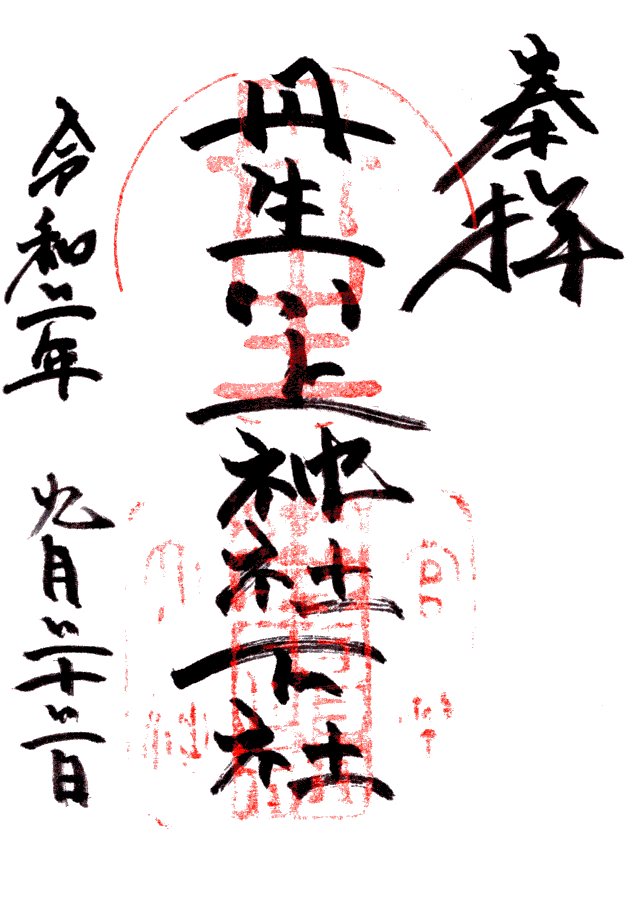 奉拝
丹生川上神社下社
令和二年 九月二十二日